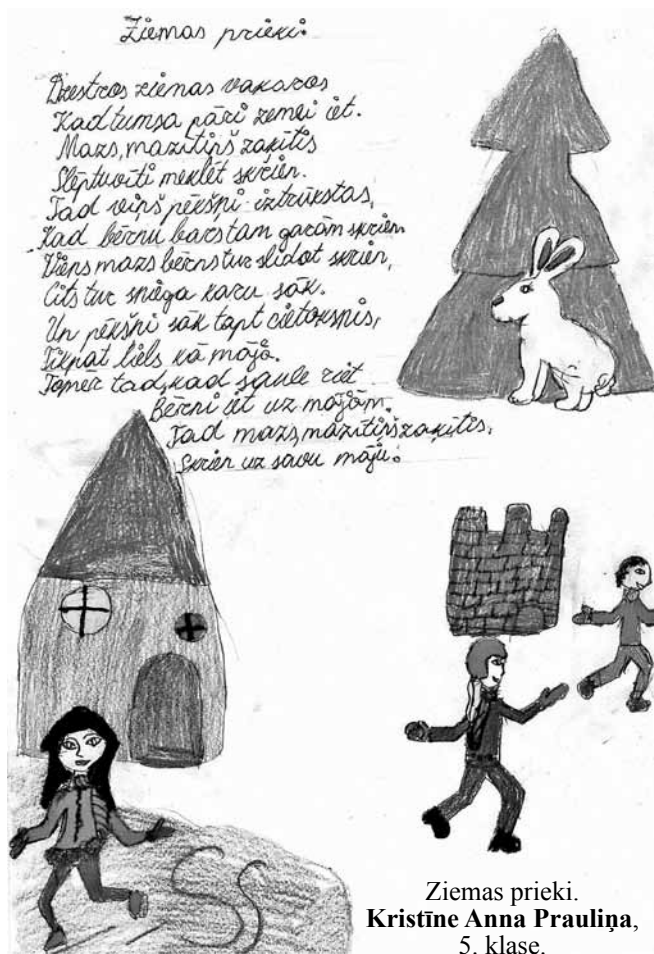 Ziemas prieki.
Dzestros ziemas vakaros
Kad tumsa pāri zemei iet.
Mazs, mazītiņš zaķītis
Slēptuvīti meklēt skrien.
Tad viņš pēkšņi iztrūkstas,
Kad bērnu bars tam garām skrien.
Viens mazs bērns tur slidot skrien,
Cits tur sniega karu sāk.
Un pēkšņi sāk tapt cietoksnis,
Tikpat liels kā māja.
Tomēr tad, kad saule riet
Bērni iet uz mājām.
Tad mazs, mazītiņš zaķītis,
Skrien uz savu māju.
Ziemas prieki.
Kristīne Anna Prauliņa,
5. klase.